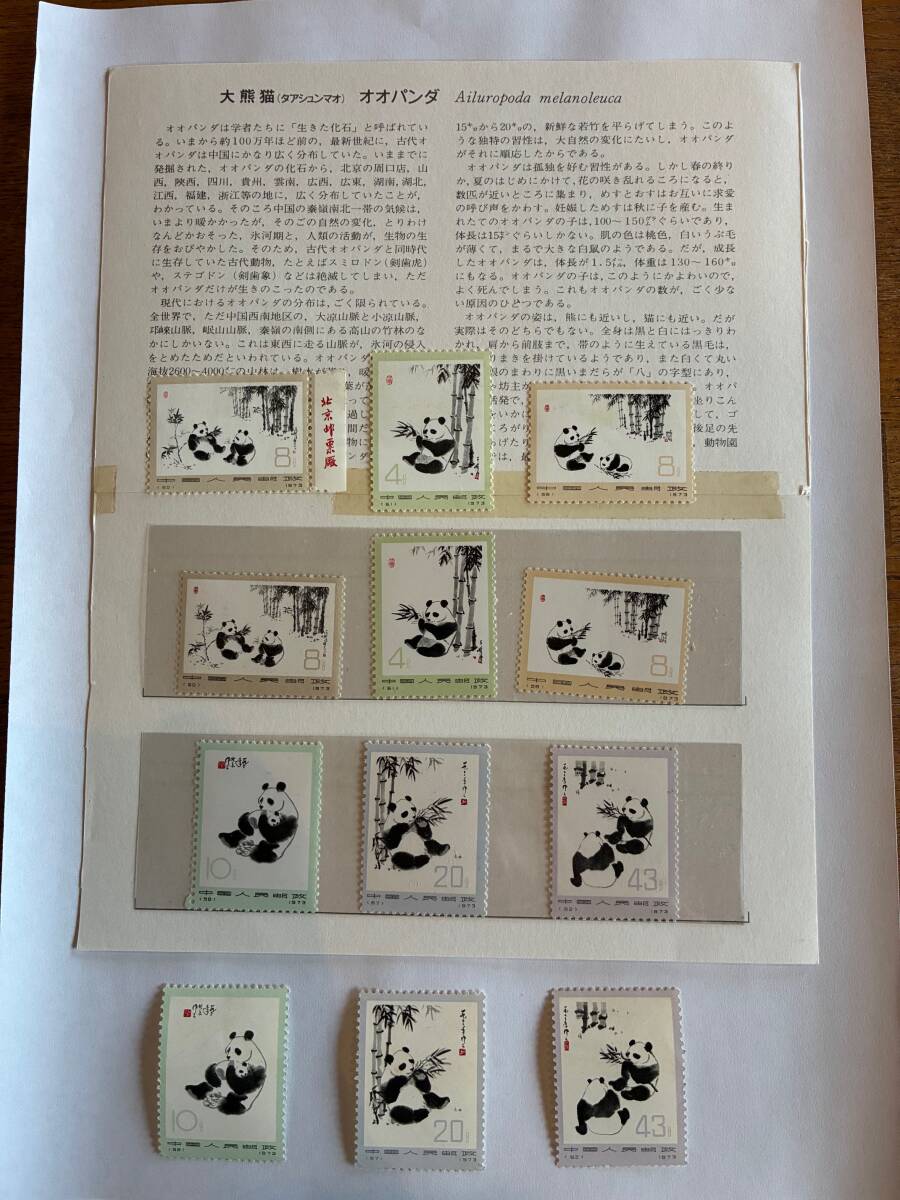 大熊猫(タアシュンマオ) オオパンダ Ailuropoda melanoleuca
オオパンダは学者たちに「生きた化石」と呼ばれてい
る。いまから約100万年ほど前の，最新世紀に，古代オ
オパンダは中国にかなり広く分布していた。いままでに
発掘された，オオパンダの化石から，北京の周口店，山
西，陜西，四川，貴州，雲南，広西，広東，湖南，湖北，
江西，福建，浙江等の地に，広く分布していたことが，
わかっている。そのころ中国の秦嶺南北一帯の気候は，
いまより暖かかったが，そのごの自然の変化，とりわけ
なんどかおそった，氷河期と，人類の活動が，生物の生
存をおびやかした。そのため，古代オオパンダと同時代
に生存していた古代動物，たとえばスミロドン（剣歯虎）
や，ステゴドン（剣歯象）などは絶滅してしまい，ただ
オオパンダだけが生きのこったのである。
現代におけるオオパンダの分布は，ごく限られている。
全世界で，ただ中国西南地区の，大凉山脈と小凉山脈，
邛崍山脈，岷山山脈，秦嶺の南側にある高山の竹林のな
かにしかいない。これは東西に走る山脈が，氷河の侵入
をとめたためだといわれている。オオパン
海抜2600〜4000
15から20の，新鮮な若竹を平らげてしまう。このよ
うな独特の習性は，大自然の変化にたいし，オオパンダ
がそれに順応したからである。
オオパンダは孤独を好む習性がある。しかし春の終り
か，夏のはじめにかけて，花の咲き乱れるころになると，
数匹が近いところに集まり，めすとおすはお互いに求愛
の呼び声をかわす。妊娠しためすは秋に子を産む。生ま
れたてのオオパンダの子は，100〜150ぐらいであり，
体長は15ぐらいしかない。肌の色は桃色，白いうぶ毛
が薄くて，まるで大きな白鼠のようである。だが，成長
したオオパンダは，体長が1.5，体重は130〜160
にもなる。オオパンダの子は，このようにかよわいので，
よく死んでしまう。これもオオパンダの数が，ごく少な
い原因のひとつである。
オオパンダの姿は，熊にも近いし，猫にも近い。だが
実際はそのどちらでもない。全身は黒と白にはっきりわ
かれ，肩から前肢まで，帯のように生えている黒毛は，
りまきを掛けているようであり，また白くて丸い
眼のまわりに黒いまだらが「八」の字型にあり，
坊主が
オオパ
活発で，
坐りこん
して，ゴ
後足の先
動物園
北京邮票厰
8分
中国人民邮政
(60) 1973
4分
中国人民邮政
(61) 1973
8分
中国人民邮政
(58) 1973
8分
中国人民邮政
(60) 1973
4分
中国人民邮政
(61) 1973
8分
中国人民邮政
(58) 1973
10分
中国人民邮政
(59) 1973
20分
中国人民邮政
(57) 1973
43分
中国人民邮政
(62) 1973
10分
中国人民邮政
(59) 1973
20分
中国人民邮政
(57) 1973
43分
中国人民邮政
(62) 1973